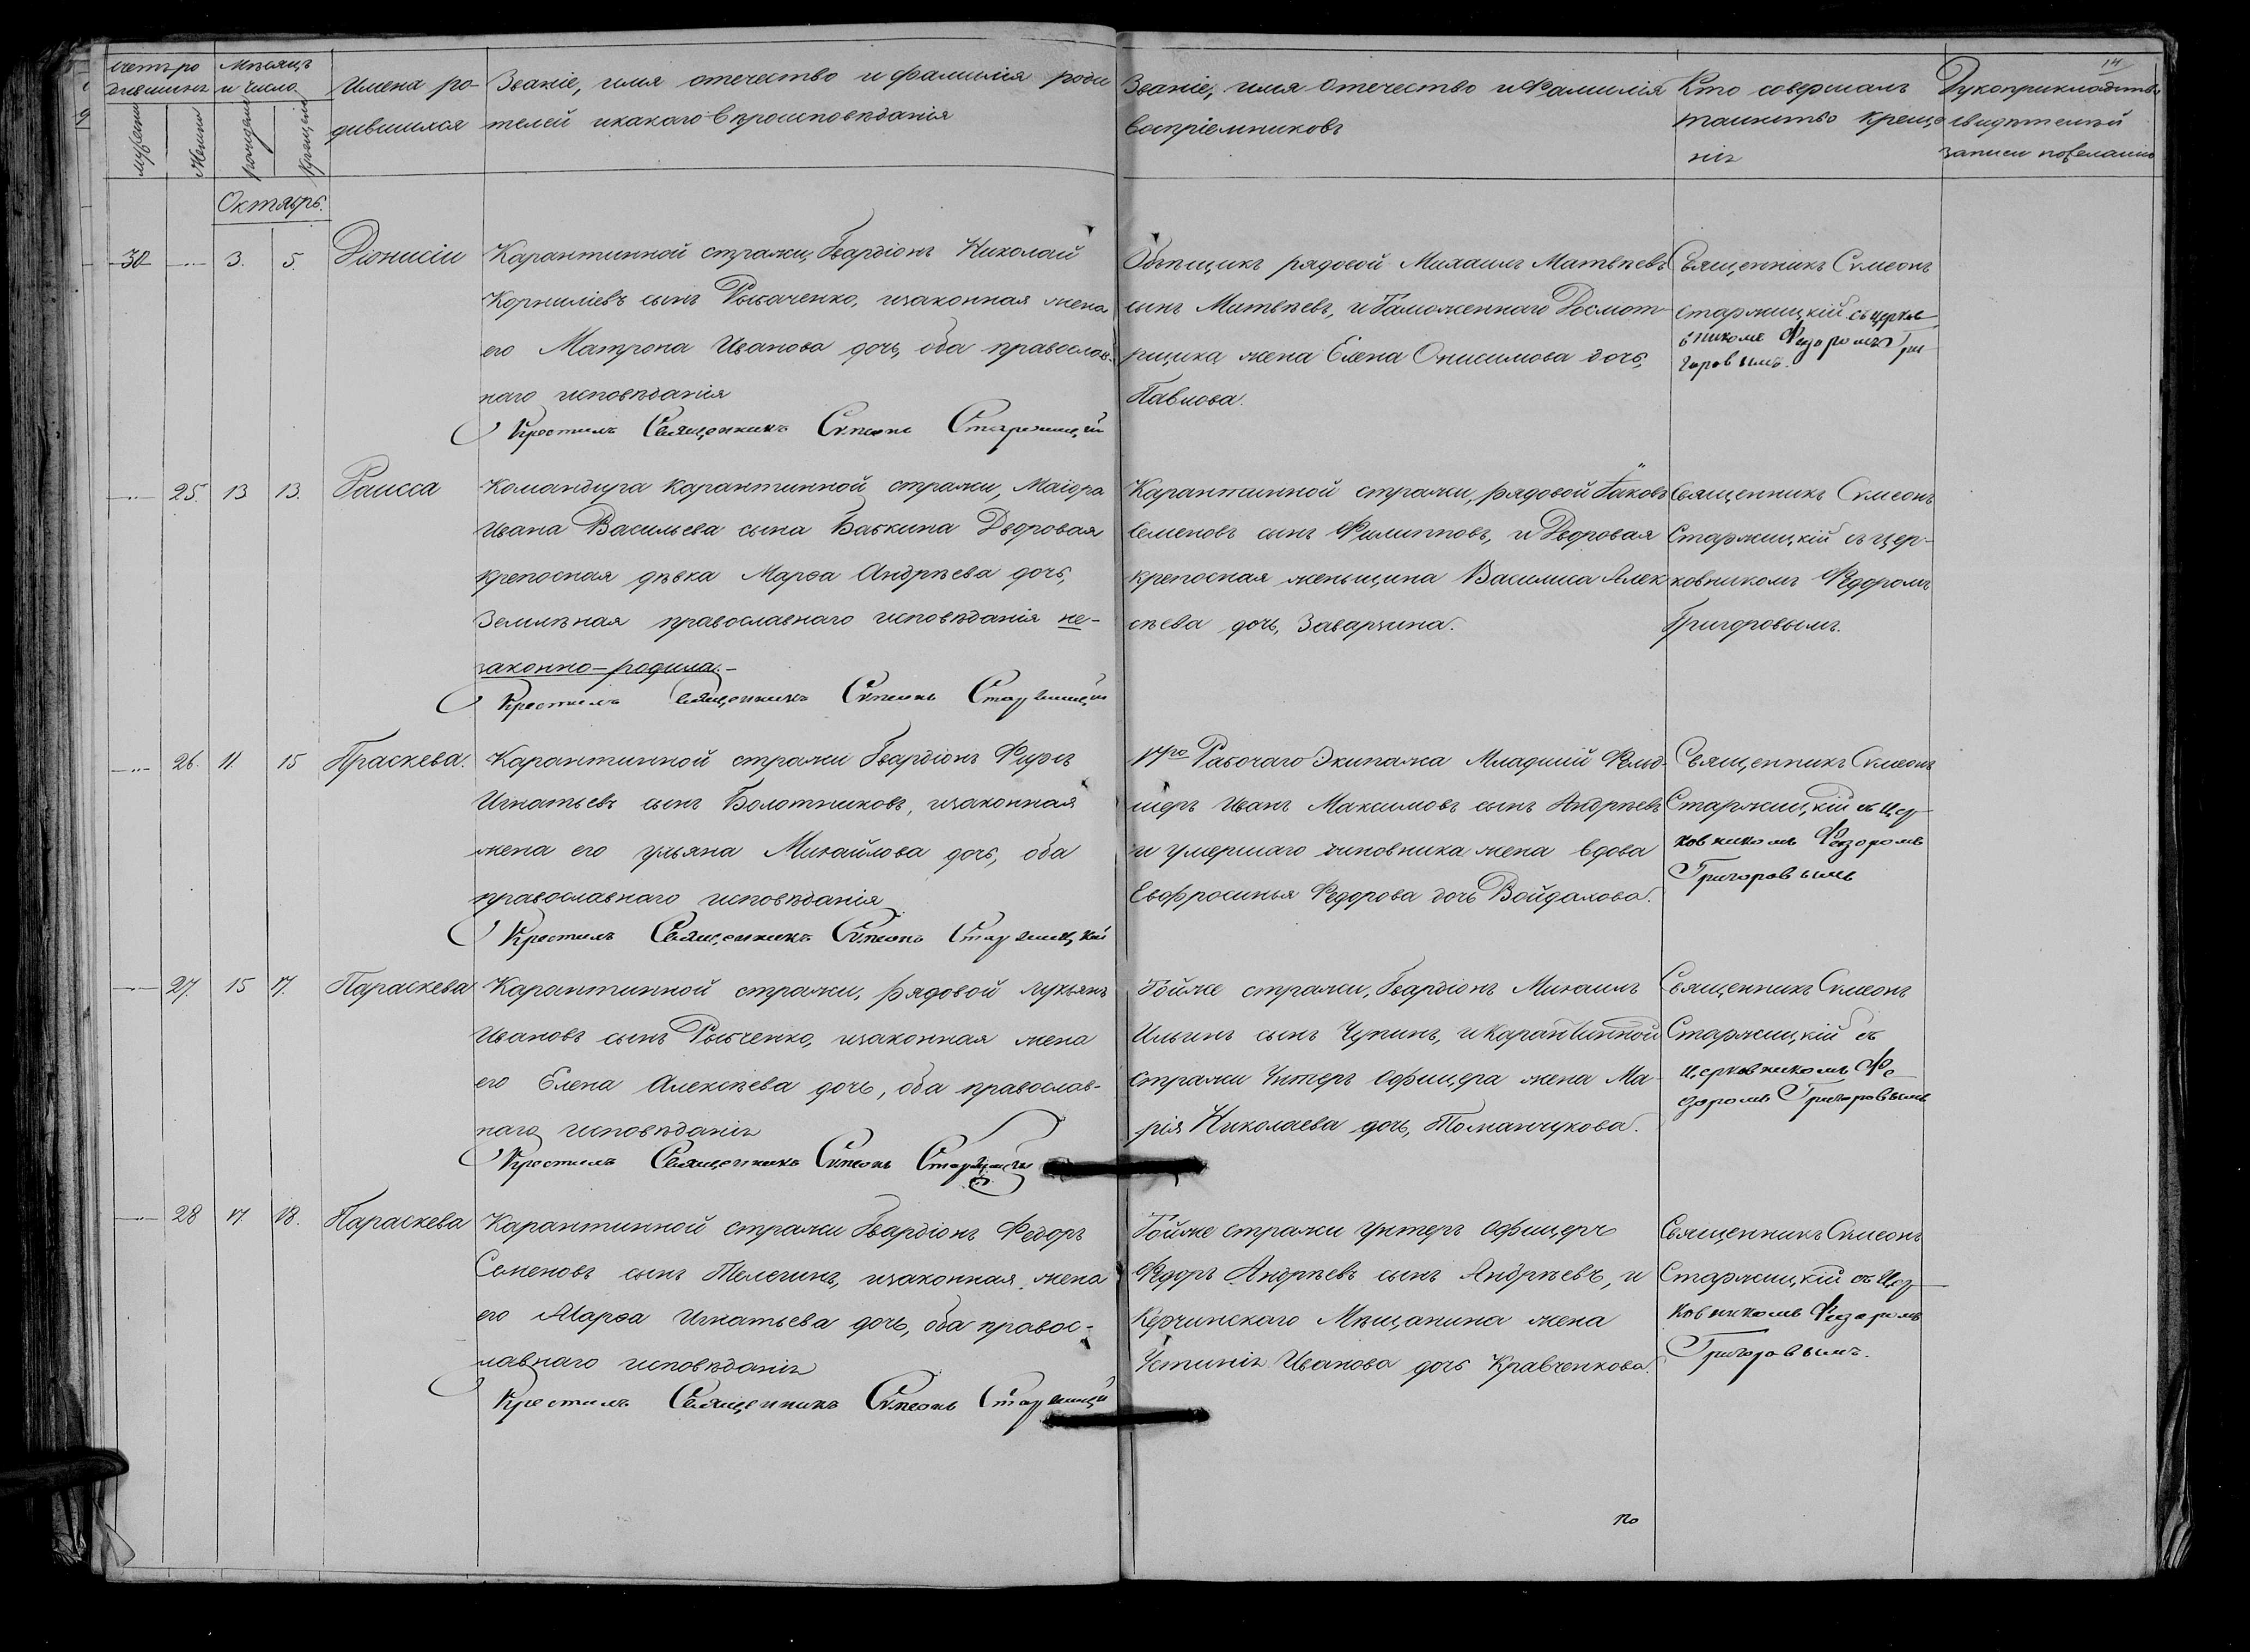 14
Счетъ ро
дившихъ
Мѣсяцъ
и число
Имена ро-
дившихся
Званіе, имя отечество и фамилія роди
телей и какаго вѣроисповѣданія
Званіе, имя отечество и Фамилія
воспріемниковъ
Кто совершалъ
таинство креще
нія
Рукоприкладство
свидѣтелей
записи по желанію
мужеска
Женска
рожденія
крещенія
Октябрь.
30 3. 5. Діонисій
Карантинной стражи, Гвардіонъ Николай
Корниліевъ сынъ Рыкаченко, изаконная жена
его Матрона Иванова дочь, оба православ-
наго исповѣданія
Крестилъ Священникъ Сѵмеонъ Старжицкій
Объѣщикъ рядовой Михаилъ Матвѣевъ
сынъ Матвѣевъ, и Таможеннаго Досмот-
рщика жена Елена Онисимова дочь,
Павлова.
Священникъ Сѵмеонъ
Старжицкій съ церко
вникомъ Федоромъ Гри
горовымъ.
25. 13 13. Раисса
Командира карантинной стражи, Маіора
Ивана Васильева сына Бабкина Дворовая
крепосная дѣвка Марѳа Андрѣева дочь,
Землѣная православнаго исповѣданія не-
законно-родила.-
Крестилъ Священникъ Сѵмеонъ Старжицкій
Карантинной стражи, рядовой Іаковъ
Семеновъ сынъ Филипповъ, и Дворовая
крепосная женьщина Василиса Алек
сѣева дочь, Заварзина.
Священникъ Сѵмеонъ
Старжицкій съ цер-
ковникомъ Федоромъ
Григоровымъ.
26. 11. 15 Праскева.
Карантинной стражи Гвардіонъ Фирсъ
Игнатьевъ сынъ Болотниковъ, изаконная
жена его ульяна Михайлова дочь, оба
православнаго исповѣданія
Крестилъ Священникъ Сѵмеонъ Старжицкій
Рабочаго Экипажа Младшій Фелд-
шеръ Иванъ Максимовъ сынъ Андрѣевъ
и умершаго чиновника жена вдова
Евфросинья Федорова дочь Войдалова.
Священникъ Сѵмеонъ
Старжицкій съ Цер-
ковникомъ Федоромъ
Григоровымъ
27. 15 17. Параскева
Карантинной стражи, рядовой лукьянъ
Ивановъ сынъ Рыбченко, изаконная жена
его Елена Алексѣева дочь, оба православ-
наго исповѣданія
Крестилъ Священникъ Сѵмеонъ Старжицкій
Тойже стражи, Гвардіонъ Михаилъ
Ильинъ сынъ Чупинъ, и Карантинной
стражи Унтеръ Офицера жена Ма-
рія Николаева дочь, Томанчукова.
Священникъ Сѵмеонъ
Старжицкій съ
Церковникомъ Фе
доромъ Григоровымъ
28 17. 18. Параскева
Карантинной стражи Гвардіонъ Федоръ
Семеновъ сынъ Телегинъ, изаконная жена
его Марѳа Игнатьева дочь, оба правос-
лавнаго исповѣданія
Крестилъ Священникъ Сѵмеонъ Старжицкій
Тойже стражи унтеръ офицеръ
Федоръ Андрѣевъ сынъ Андрѣевъ, и
Керчинскаго Мѣщанина жена
Устинія Иванова дочь Кравченкова.
Священникъ Сѵмеонъ
Старжицкій съ Цер-
ковникомъ Федоромъ
Григоровымъ.
по